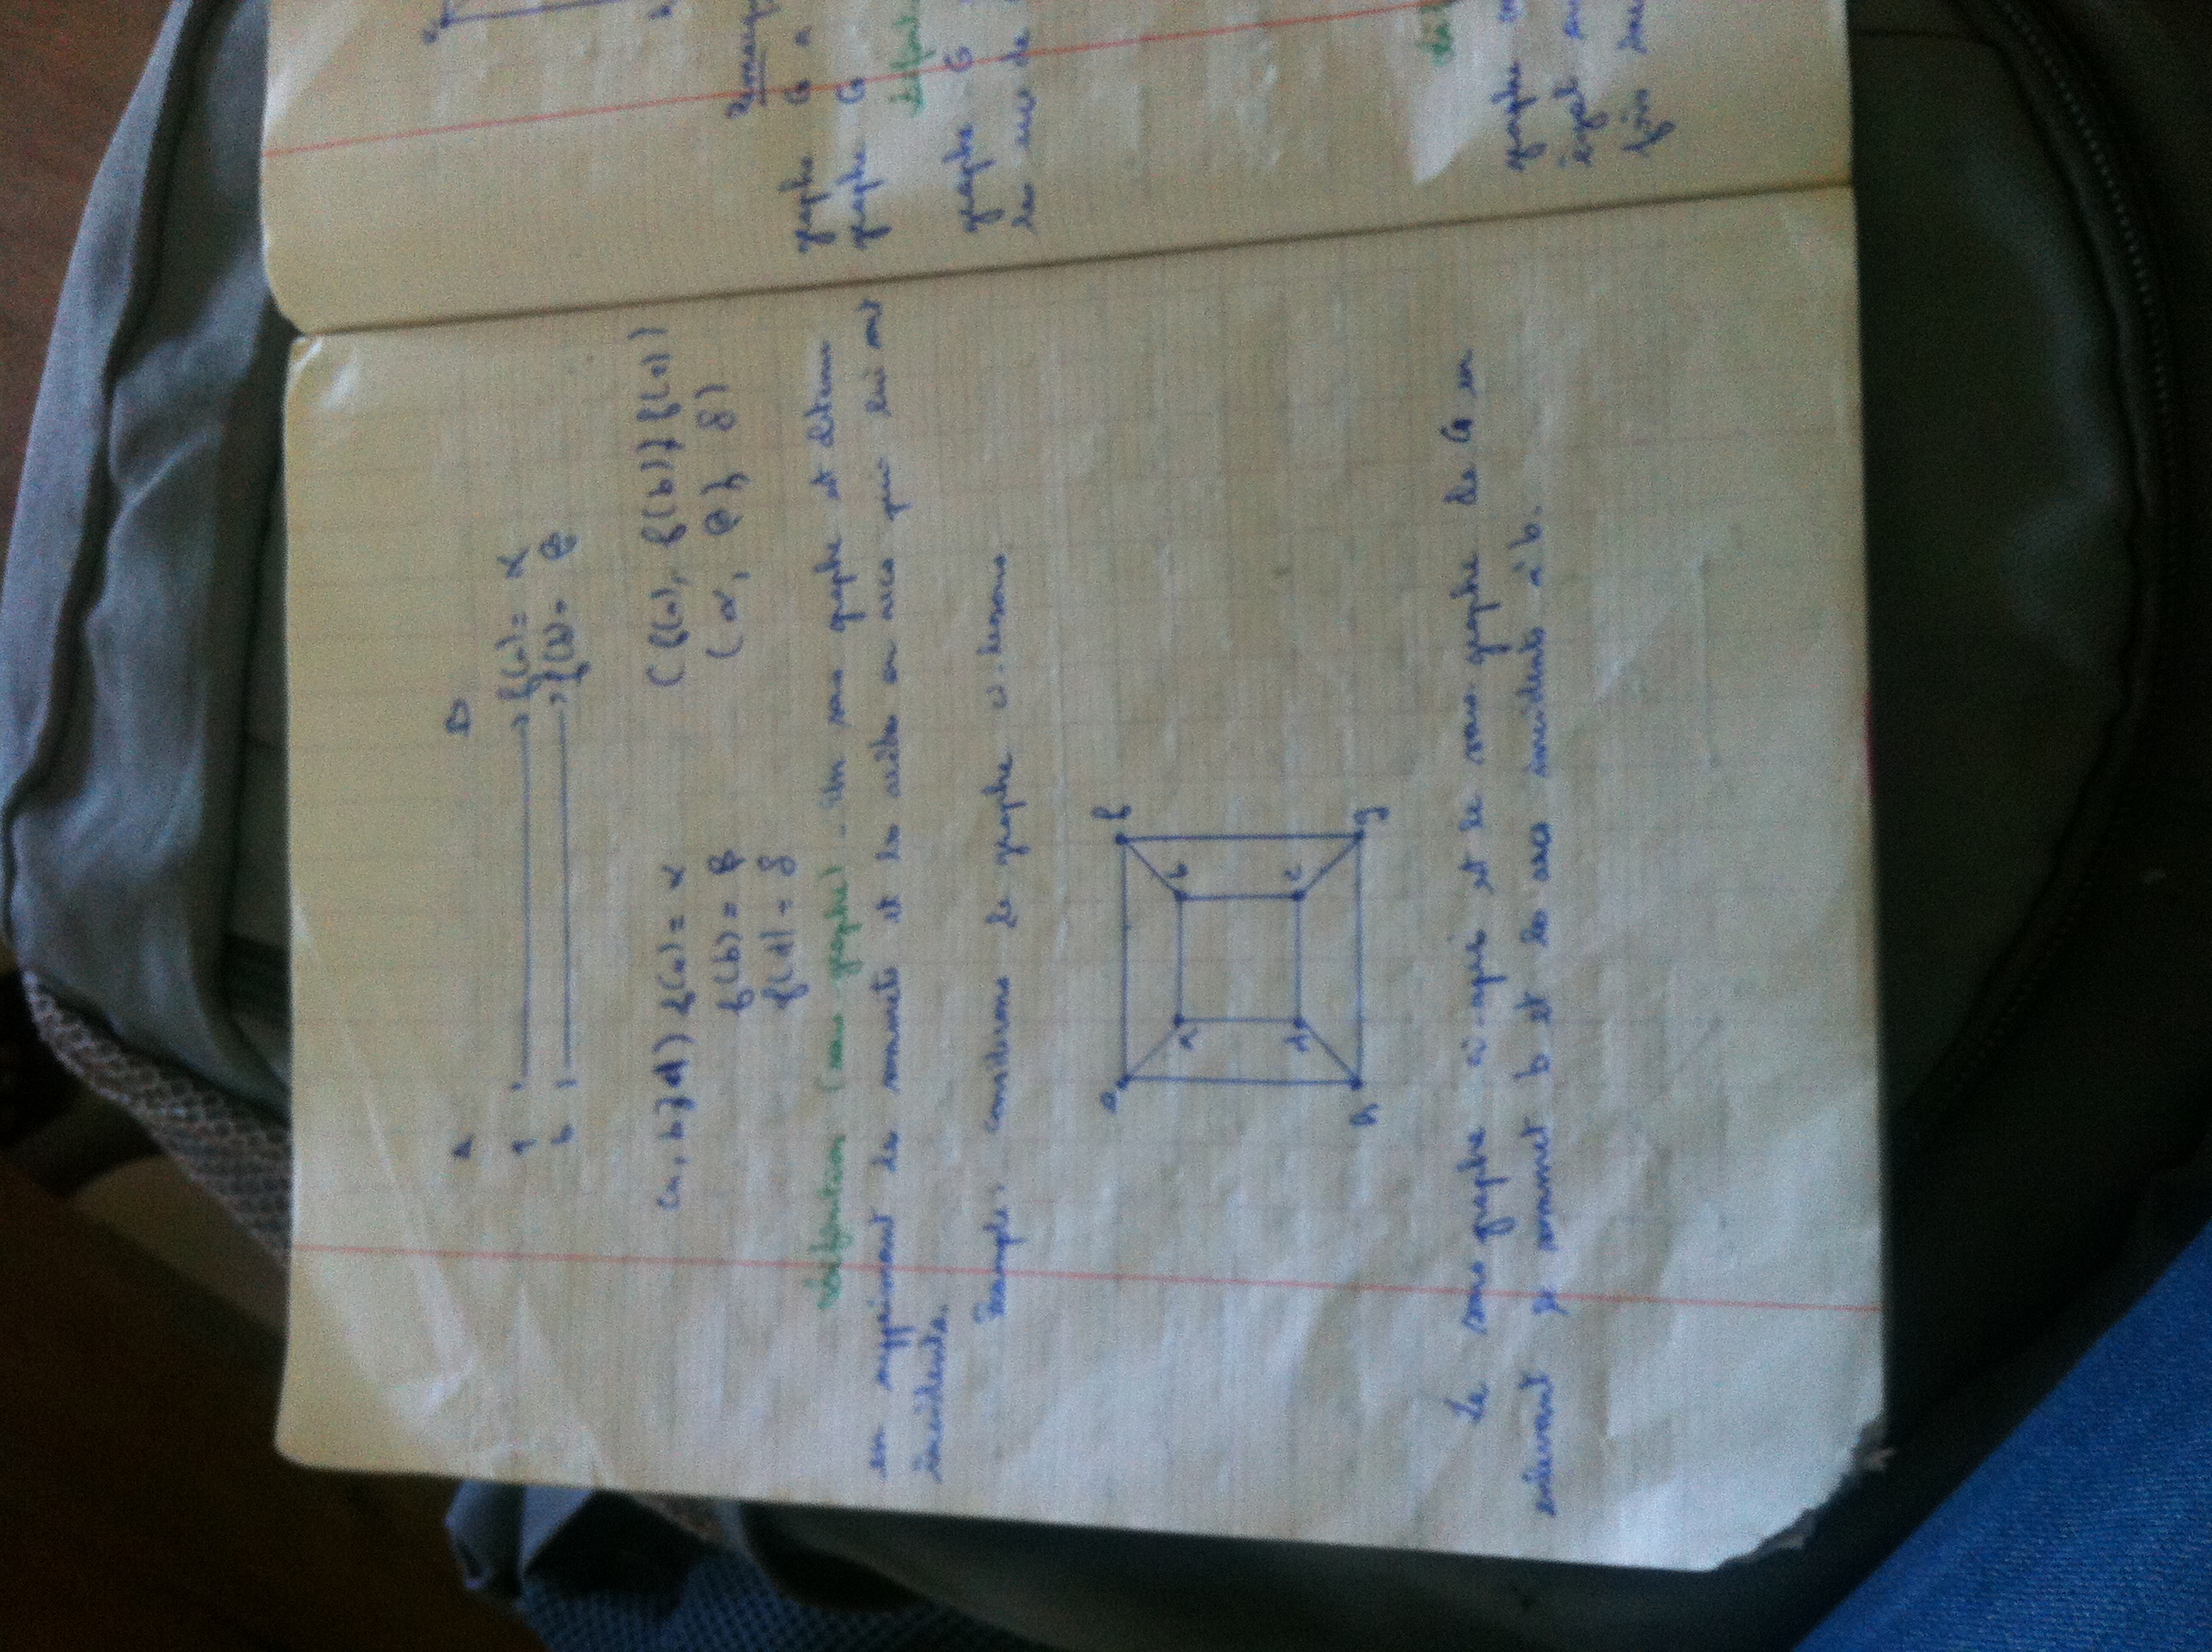 A B
a f(a) = α
b f(b) = β
(a, b} d) f(a) = α (f(a), f(b)} f(d))
f(b) = β (α, β} δ)
f(d) = δ
Définition (sous graphe). Un sous graphe est obtenu
en supprimant les sommets et les arêtes ou arcs qui lui sont
incidents.
Exemple: considerons le graphe ci-dessous
e f
a b
d c
h g
Le sous graphe ci-après est le sous-graphe de G en
enlevant le sommet b et les arcs incidents à b.
Remarq
graphe G a
graphe G
Définit
graphe G
les arcs de
graphe
égal au
fois